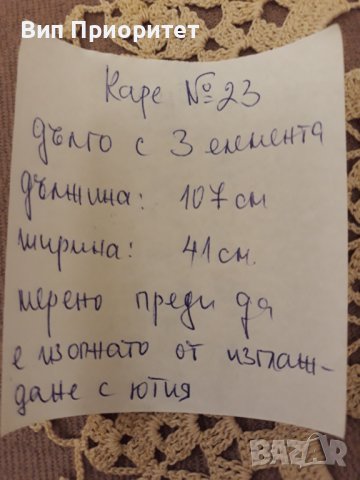 Вип Приоритет
Каре № 23
дълго с 3 елемента
дължина: 107 см
ширина: 41 см.
мерено преди да
е изопнато от изглаж-
дане с ютия
BAZAR